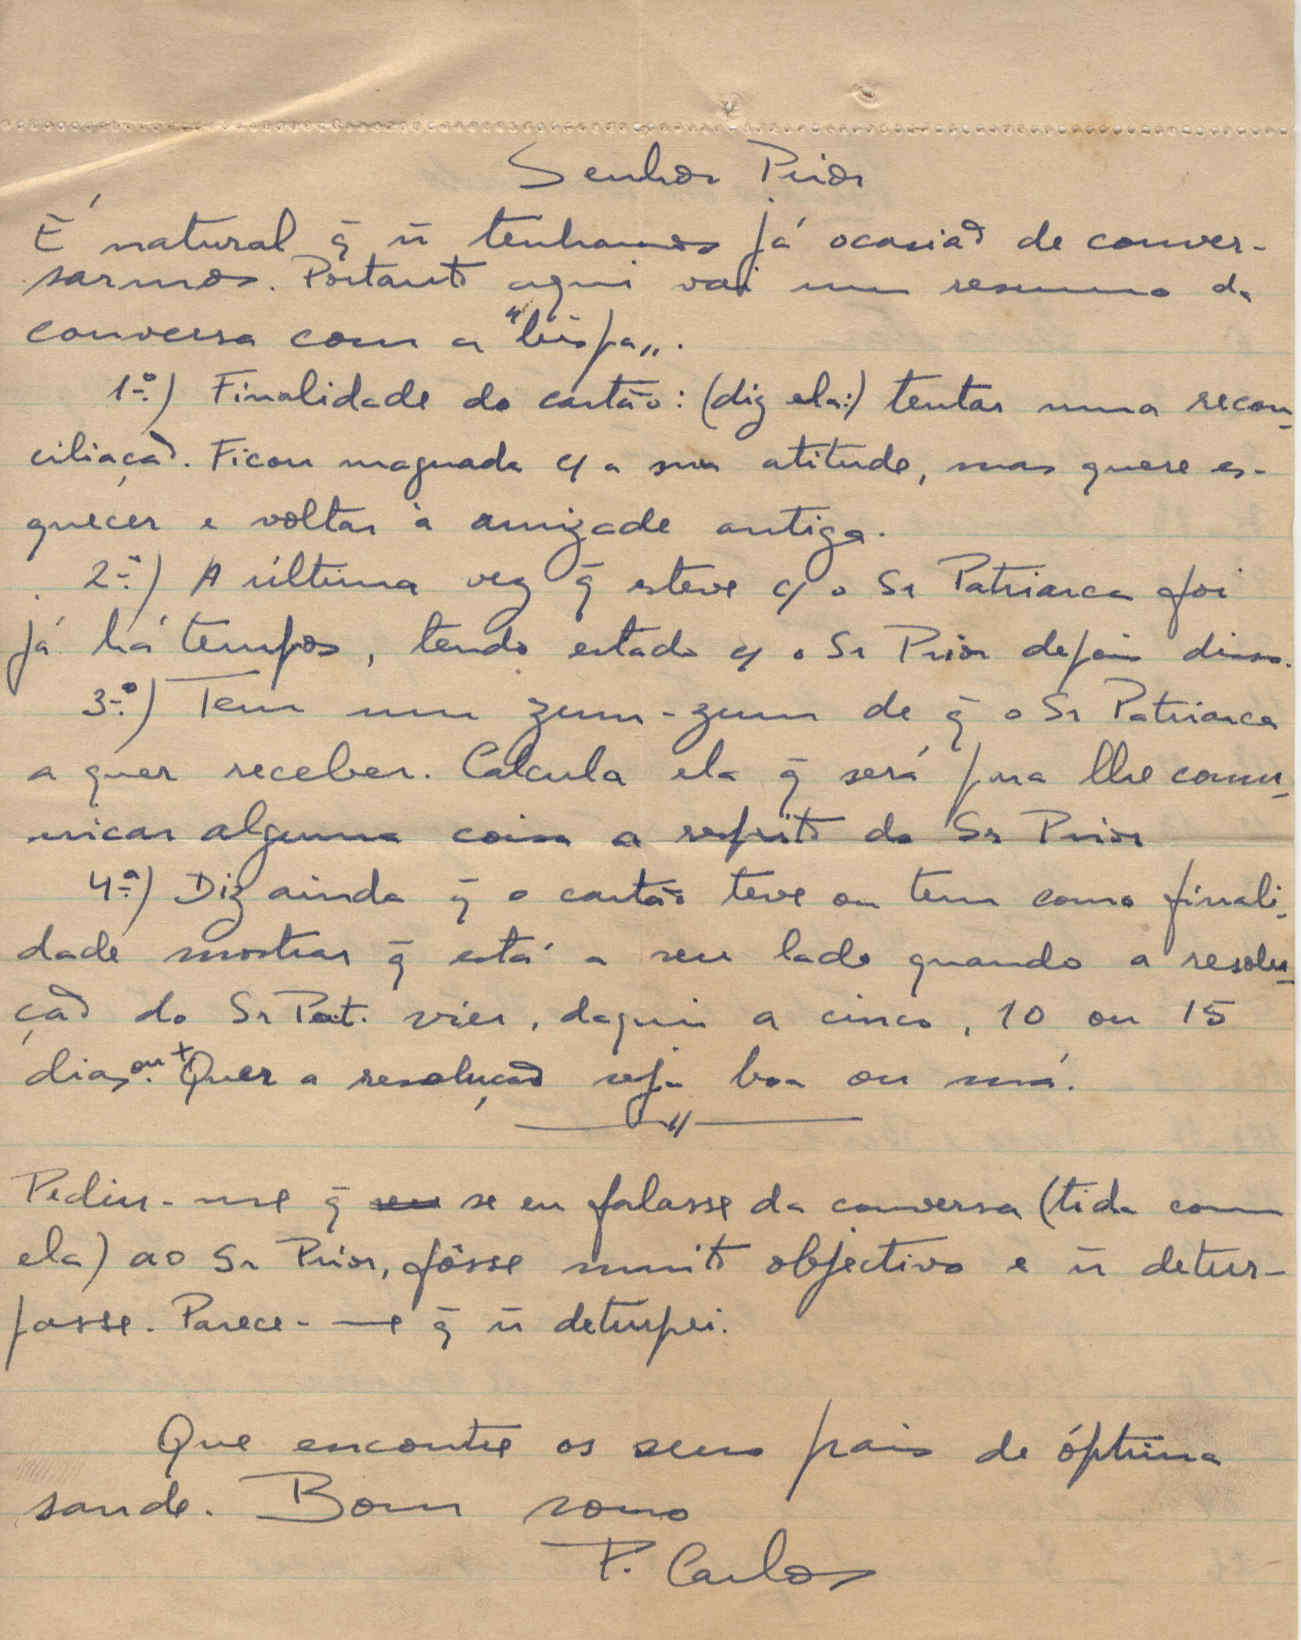 Senhor Prior
É natural q̄ ñ tenhamos já ocasião de conver-
sarmos. Portanto aqui vai um resumo da
conversa com a "bispa".
1º.) Finalidade do cartão: (diz ela:) tentar uma recon-
ciliação. Ficou magoada c/ a sua atitude, mas quere es-
quecer e voltar à amizade antiga.
2º.) A última vez q̄ esteve c/ o Sr Patriarca foi
já há tempos, tendo estado c/ o Sr Prior depois disso.
3º.) Tem um zum-zum de q̄ o Sr Patriarca
a quer receber. Calcula ela q̄ será para lhe comu-
nicar alguma coisa a respeito do Sr Prior
4º.) Diz ainda q̄ o cartão teve ou tem como finali-
dade mostrar q̄ está a seu lado quando a resolu-
ção do Sr Pat. vier, daqui a cinco, 10 ou 15
dias ou +. Quer a resolução seja boa ou má.
——//——
Pediu-me q̄ se eu falasse da conversa (tida com
ela) ao Sr Prior, fôsse muito objectivo e ñ detur-
passe. Parece-me q̄ ñ deturpei.
Que encontre os seus pais de óptima
saude. Bom sono
P. Carlos